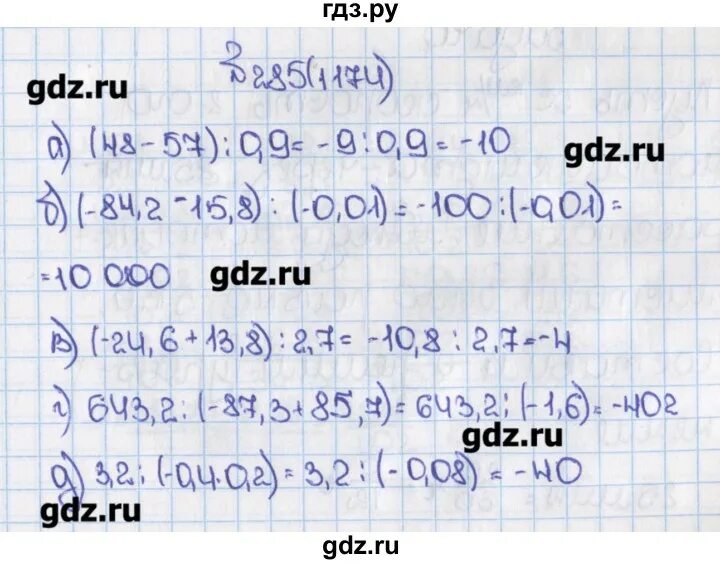 гдз.ру
№285(1174)
gdz.ru
а) (48-57):0,9= -9:0,9=-10
gdz.ru
б) (-84,2-15,8):(-0,01)=-100:(-0,01)=
=10 000
gdz.ru
в) (-24,6+13,8):2,7= -10,8:2,7=-4
г) 643,2:(-87,3+85,7)=643,2:(-1,6)=-402
gdz.ru
д) 3,2:(-0,4·0,2)=3,2:(-0,08)=-40
gdz.ru
gdz.ru